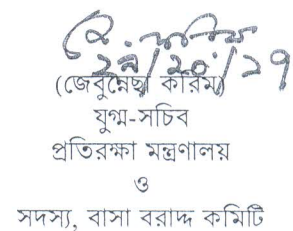 ২৯/১০/১৭
(জেবুন্নেছা করিম)
যুগ্ম-সচিব
প্রতিরক্ষা মন্ত্রণালয়
ও
সদস্য, বাসা বরাদ্দ কমিটি